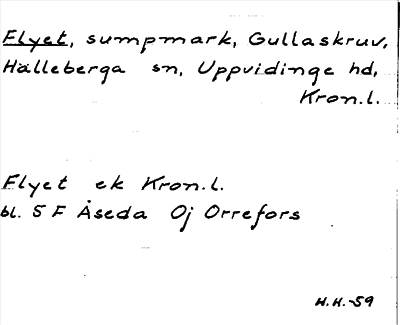 Flyet, sumpmark, Gullaskruv,
Hälleberga sn, Uppvidinge hd,
Kron.l.
Flyet ek Kron.l.
bl. 5 F Åseda Oj Orrefors
H.H.-59